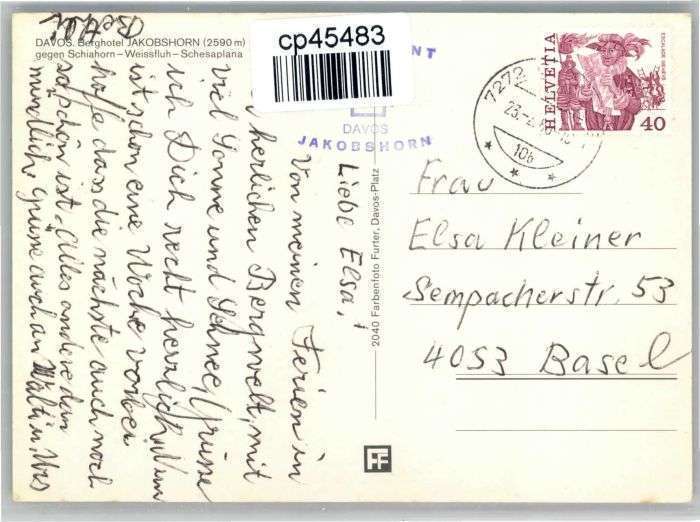 DAVOS. Berghotel JAKOBSHORN (2590 m)
gegen Schiahorn – Weissfluh – Schesaplana
cp45483
DAVOS
JAKOBSHORN
7272
23.-2.
10b
HELVETIA
40
Liebe Elsa,!
Von meinen Ferien in
herlichen Bergwelt, mit
viel Sonne und Schnee, Grüsse
ich Dich recht herzlich.
ist schon eine Woche vorbei
hoffe dass die nächste auch noch
so schön ist. Alles andere dan
mündlich Grüsse auch an
2040 Farbenfoto Furter, Davos-Platz
FF
Frau
Elsa Kleiner
Sempacherstr. 53
4053 Basel